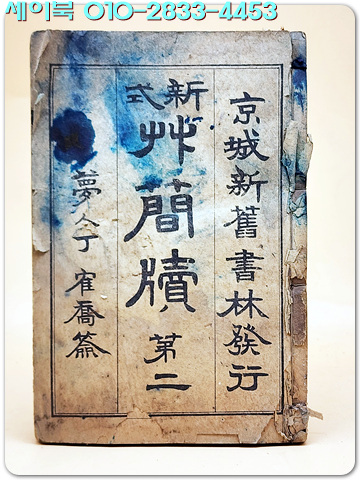 세이북 010-2833-4453
京城新舊書林發行
新式
艸簡牘 第二
夢人丁